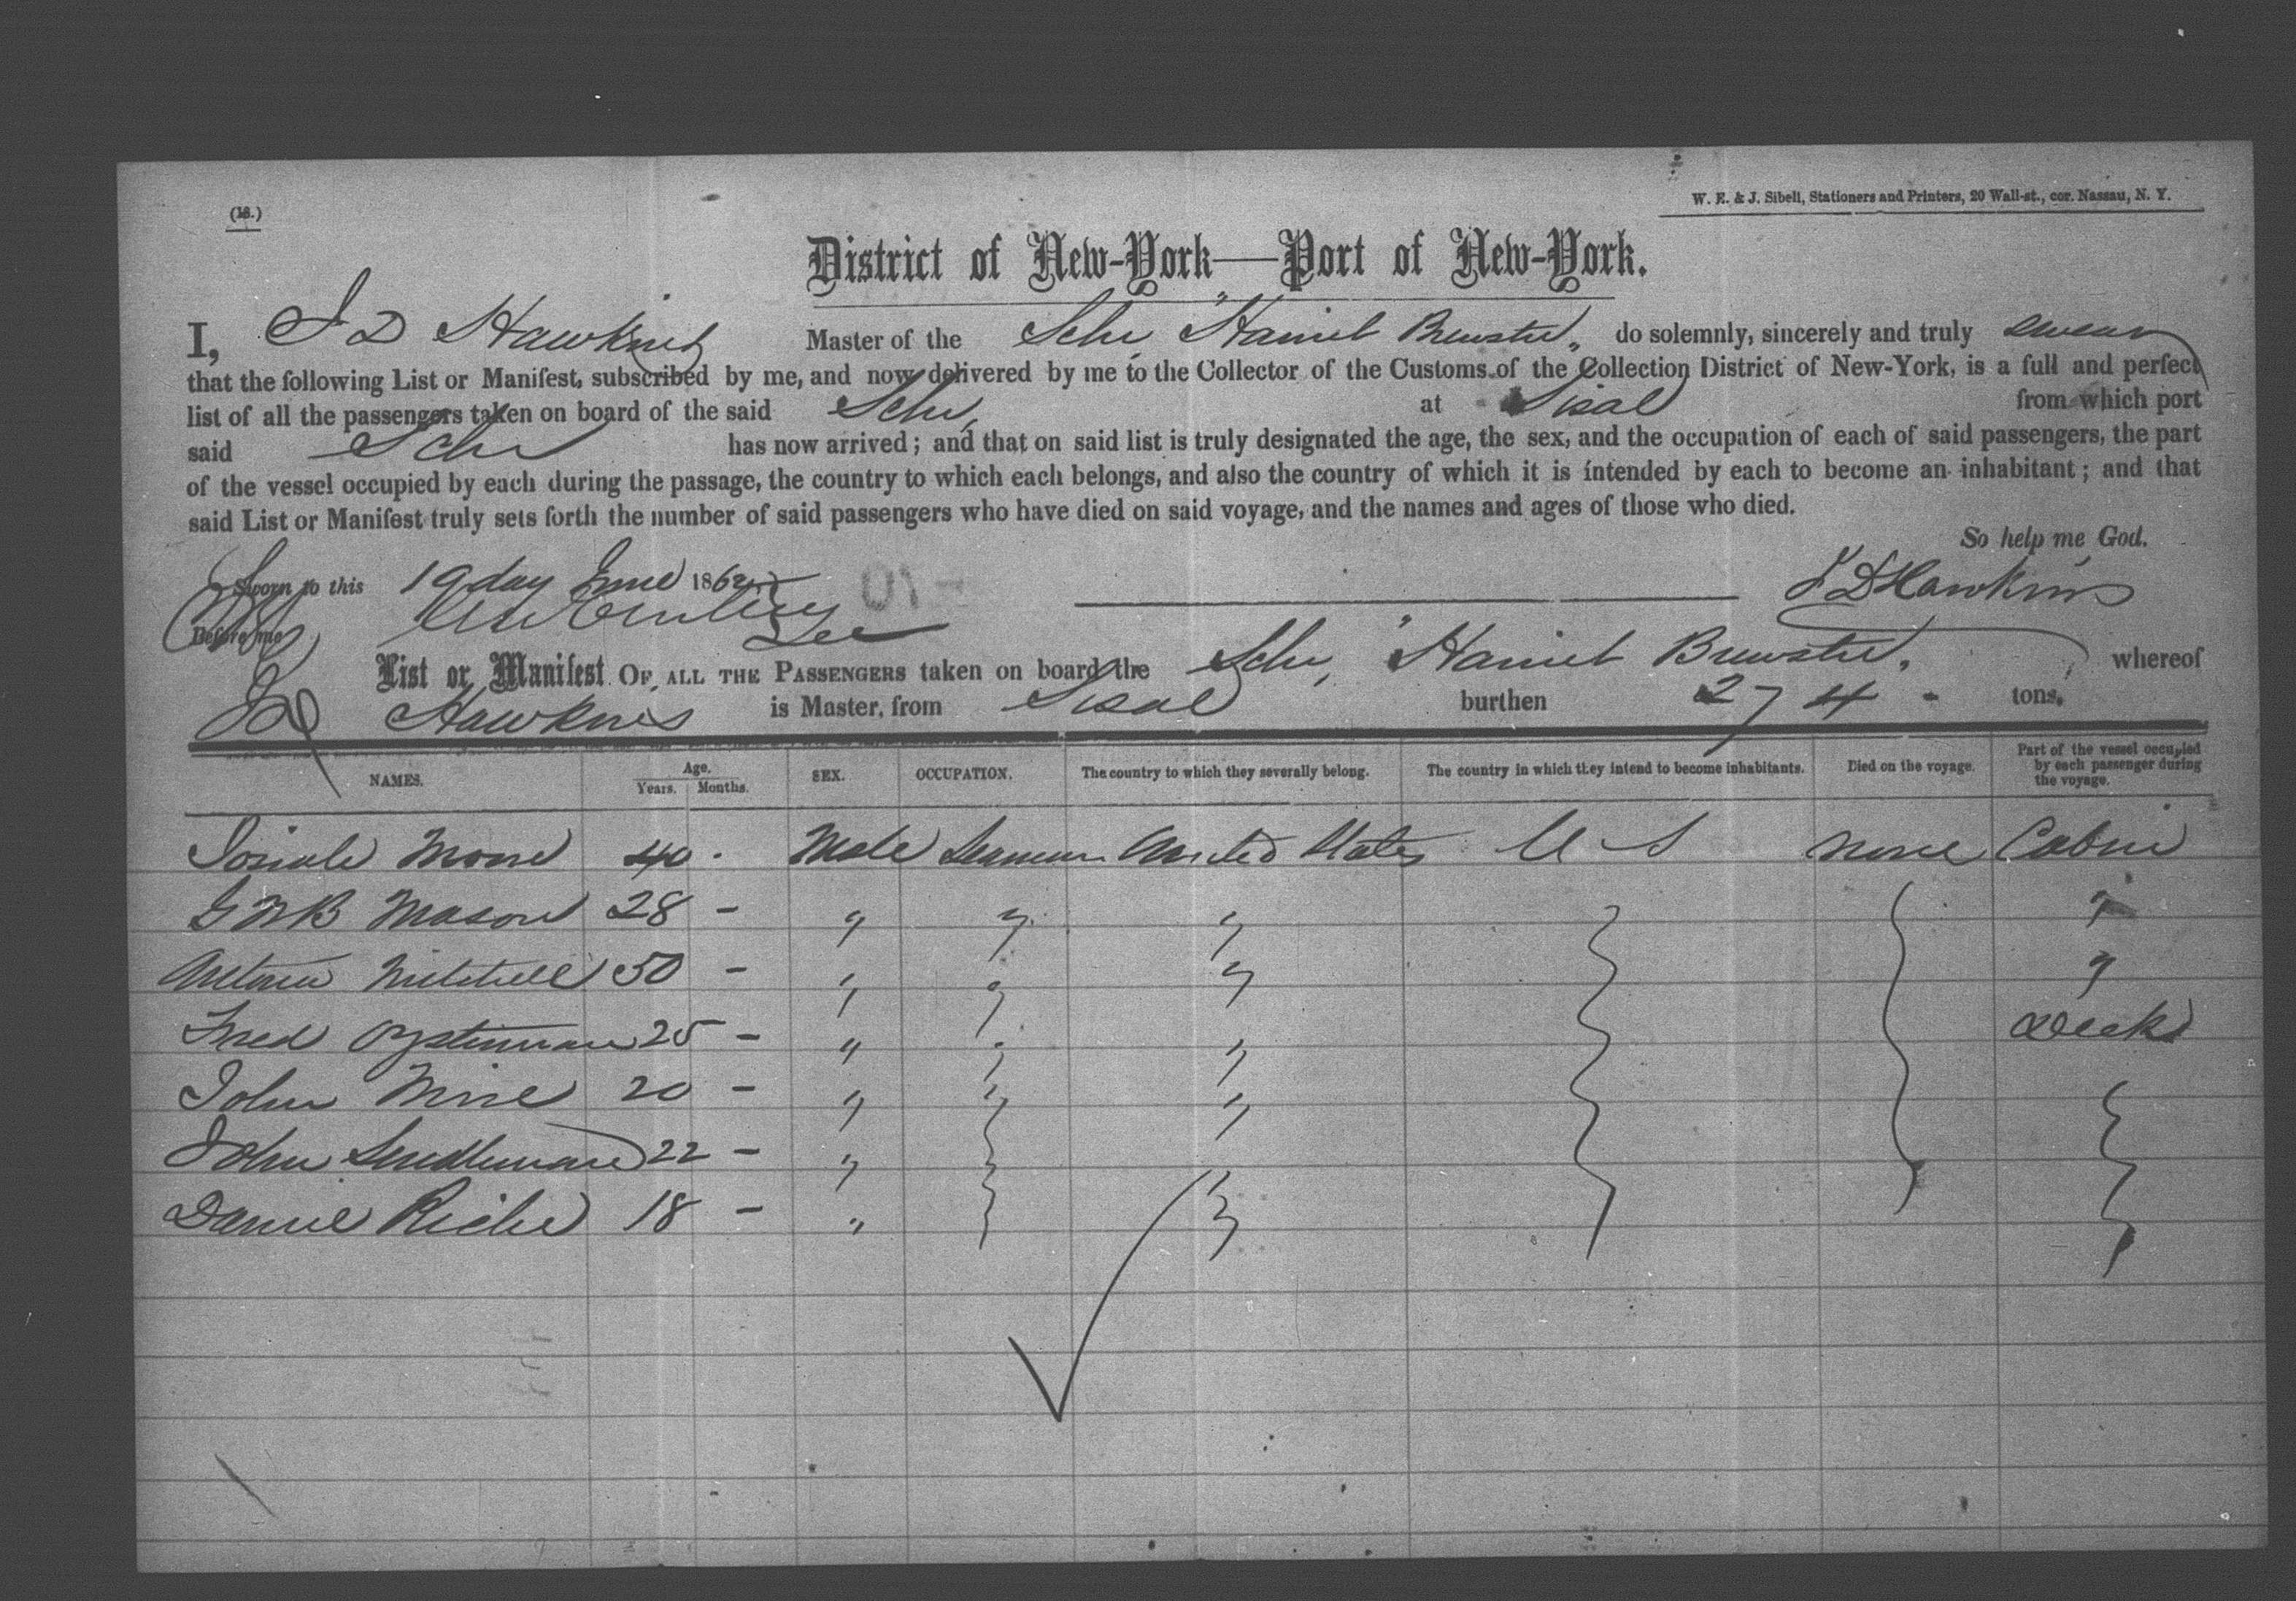 (18.)
W. E. & J. Sibell, Stationers and Printers, 20 Wall-st., cor. Nassau, N. Y.
District of New-York—Port of New-York.
I, J D Hawkins Master of the Schr, "Harriet Brewster" do solemnly, sincerely and truly swear
that the following List or Manifest, subscribed by me, and now delivered by me to the Collector of the Customs of the Collection District of New-York, is a full and perfect
list of all the passengers taken on board of the said Schr, at Sisal from which port
said Schr has now arrived; and that on said list is truly designated the age, the sex, and the occupation of each of said passengers, the part
of the vessel occupied by each during the passage, the country to which each belongs, and also the country of which it is intended by each to become an inhabitant; and that
said List or Manifest truly sets forth the number of said passengers who have died on said voyage, and the names and ages of those who died.
So help me God.
Sworn to this 19 day June 1862
J D Hawkins
Before me
List or Manifest OF ALL THE PASSENGERS taken on board the Schr, "Harriet Brewster" whereof
Hawkins is Master, from Sisal burthen 274 - tons.
NAMES. Age. Years. Months. SEX. OCCUPATION. The country to which they severally belong. The country in which they intend to become inhabitants. Died on the voyage. Part of the vessel occupied by each passenger during the voyage.
Josiah 40 - Male Seaman United States U S none Cabin
G W B Mason 28 - " " " "
Mitchell 50 - " " " "
Fred Oysterman 25 - " " " Deck
John 20 - " " "
John 22 - "
Daniel 18 - "